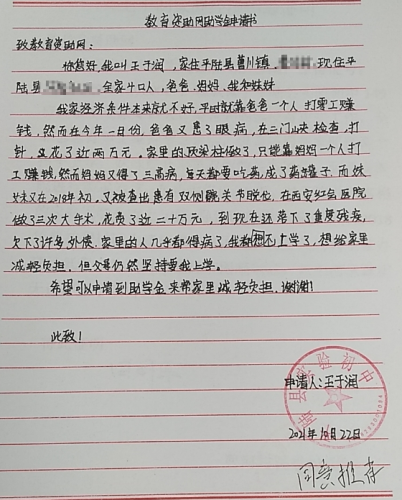 教育资助网助学金申请书
致教育资助网：
你您好，我叫王于润，家住平陆县曹川镇 现住平
陆县 全家4口人，爸爸、妈妈、我和妹妹
我家经济条件本来就不好，平时就靠爸爸一个人打零工赚
钱，然而在今年一月份，爸爸又患了眼病，在三门峡检查，打
针，又花了近两万元。家里的顶梁柱倒了，只能靠妈妈一个人打
工赚钱，然而妈妈又得了三高病，每天都要吃药，成了药罐子，而妹
妹又在2018年初，又被查出患有双侧髋关节脱位，在西安红会医院
做了三次大手术，花费了近二十万元，到现在还落下了重度残疾，
欠下了许多外债，家里的人几乎都得病了，我都想不上学了，想给家里
减轻负担，但父母仍然坚持要我上学。
希望可以申请到助学金来帮家里减轻负担，谢谢！
此致！
县实验初中
申请人：王于润
2021年10月22日
同意推荐